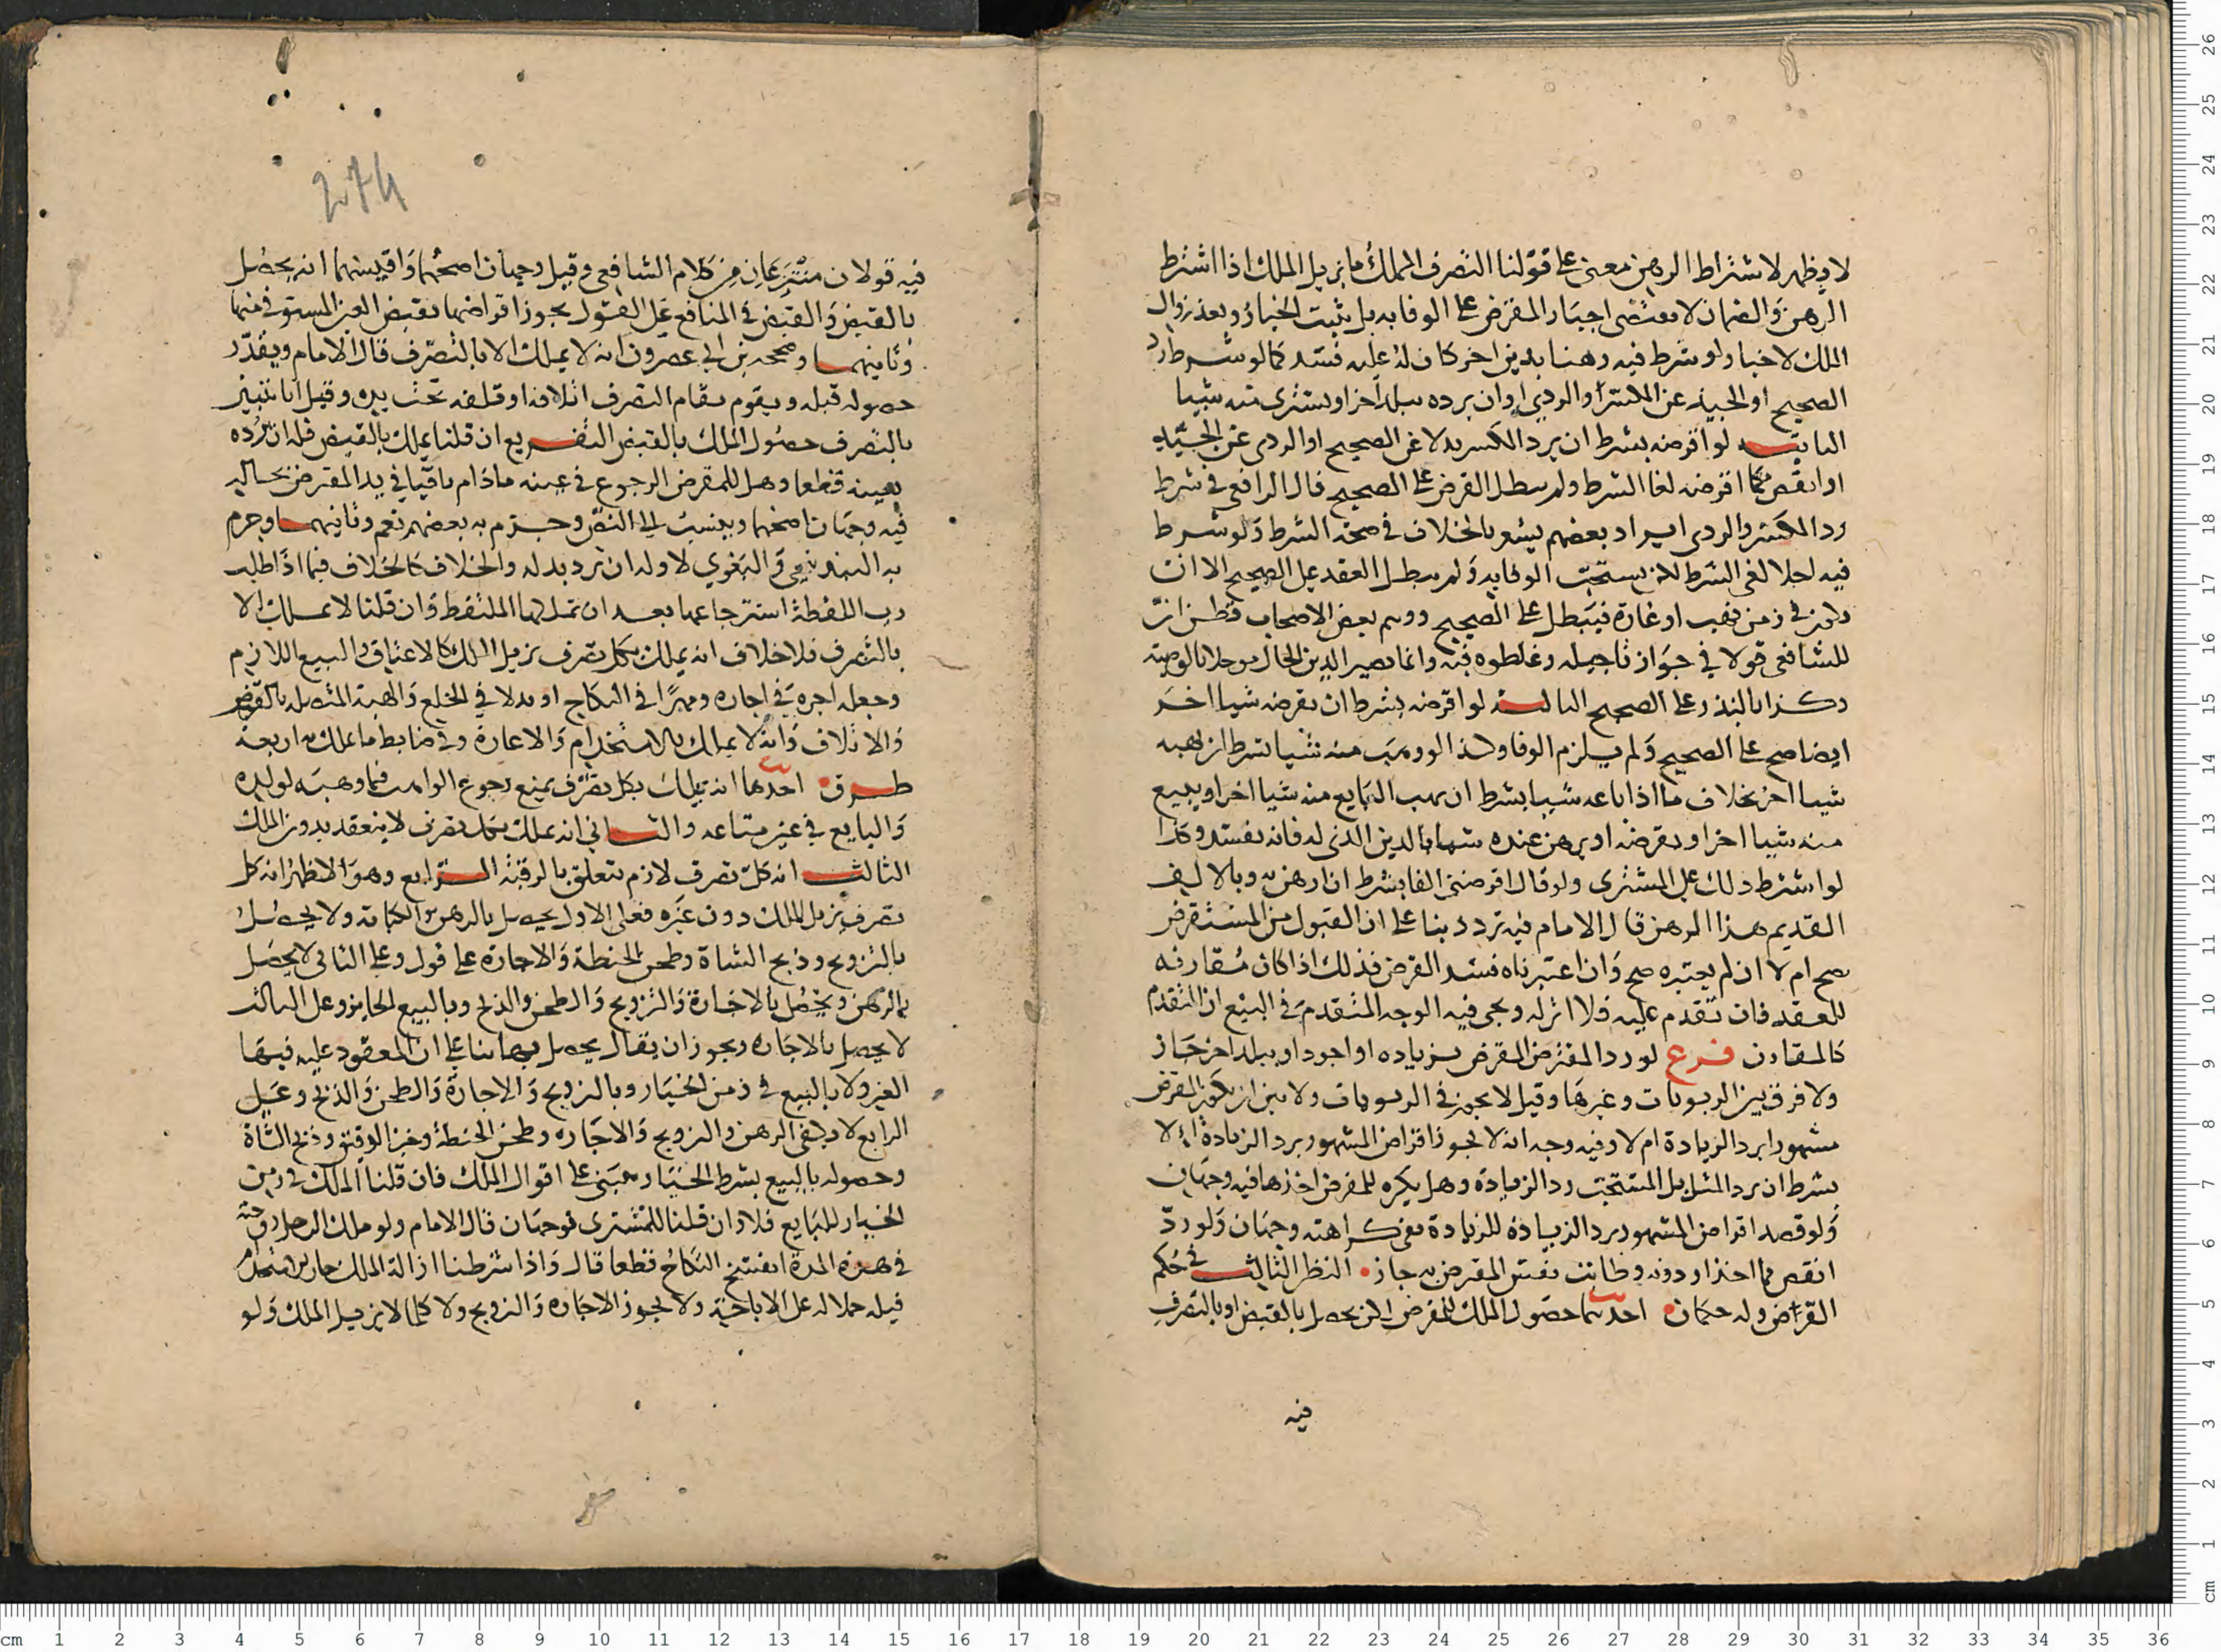 لا يظهر لاشتراط الرهن معنى على قولنا التصرف المملك ما يزيل الملك اذا اشترط
الرهن والضمان لا يقتضى اجبار المقترض على الوفا به بل يثبت الخيار وبعد زوال
الملك لا خيار ولو شرط فيه رهنا بدين اخر كان له عليه فسد كما لو شرط رد
الصحيح او الجيد عن المكسر او الردي او ان يرده ببلد اخر او يشترى منه شيا
الثانية لو اقرضه بشرط ان يرد المكسر بدلا عن الصحيح او الردى عن الجيد
او انقص مما اقرضه لغا الشرط ولم يبطل القرض على الصحيح قال الرافعي في شرط
رد المكسر والردى ايراد بعضهم يشعر بالخلاف في صحة الشرط ولو شرط
فيه اجلا لغى الشرط لكن يستحب الوفا به ولم يبطل العقد على الصحيح الا ان
يكون في زمن نهب او غارة فيبطل على الصحيح ووهم بعض الاصحاب فظن ان
للشافعى قولا في جواز تاجيله وغلطوه فيه وانما يصير الدين الحال موجلا بالوصية
وكذا بالنذر على الصحيح الثالثة لو اقرضه بشرط ان يقرضه شيا اخر
ايضا صح على الصحيح ولم يلزم الوفا وكذا لو وهب منه شيا بشرط ان يهبه
شيا اخر بخلاف ما اذا باعه شيا بشرط ان يهب البايع منه شيا اخر او يبيع
منه شيا اخر او يقرضه او يرهن عنده شيا بالدين الذى له فانه يفسد وكذا
لو اشترط ذلك على المشترى ولو قال اقرضنى الفا بشرط ان ارهن به وبالالف
القديم هذا الرهن قال الامام فيه تردد بنا على ان القبول من المستقرض
صح ام لا ان لم يعتبره صح وان اعتبرناه فسد القرض فذلك اذا كان مقارفه
للعقد فان تقدم عليه فلا اثر له ويجى فيه الوجه المتقدم في البيع ان المتقدم
كالمقارن فرع لو رد المقترض المقرض بزياده او اجود او ببلد اخر جاز
ولا فرق بين الربويات وغيرها وقيل لا يجوز في الربويات ولا بين ان يكون المقترض
مشهورا برد الزيادة ام لا وفيه وجه انه لا يجوز اقراض المشهور برد الزيادة الا
بشرط ان يرد المثل بل المستحب رد الزيادة وهل يكره للمقرض اخذها فيه وجهان
ولو قصد اقراض المشهور برد الزيادة للزيادة ففى كراهته وجهان ولو رد
انقص مما اخذ او دونه وطابت نفس المقرض به جاز النظر الثالث في حكم
القراض وله حكمان احدهما حصول الملك للمقترض الذى يحصل بالقبض او بالتصرف
فيه
274
فيه قولان منتزعان من كلام الشافعى وقيل وجهان اصحهما واقيسهما انه يحصل
بالقبض والقبض في المنافع على القول بجواز اقراضها بقبض العين المستوفى منها
وثانيهما وصححه بن ابى عصرون انه لا يملك الا بالتصرف قال الامام ويقدر
حصوله قبله ويقوم مقام التصرف اتلافه او تلفه تحت يده وقيل انا نتبين
بالتصرف حصول الملك بالقبض التفريع ان قلنا يملك بالقبض فله ان يرده
بعينه قطعا وهل للمقرض الرجوع في عينه ما دام باقيا في يد المقترض بحاله
فيه وجهان اصحهما وينسب الى النص وجزم به بعضهم نعم وثانيهما وجزم
به البندنيجى والبغوي لا وله ان يرد بدله والخلاف كالخلاف فيما اذا طلب
رب اللقطة استرجاعها بعد ان تملكها الملتقط وان قلنا لا يملك الا
بالتصرف فلا خلاف انه يملك بكل تصرف يزيل الملك كالاعتاق والبيع اللازم
وجعله اجرة في اجاره ومهرا في النكاح او بدلا في الخلع والهبة المتصله بالقبض
والاتلاف وانه لا يملك بالاستخدام والاعارة وفى ضابط ما يملك به اربعة
طرق احدها انه يملك بكل تصرف يمنع رجوع الواهب فيما وهبه لولده
والبايع في عين متاعه والثانى انه يملك بكل تصرف لا ينعقد بدون الملك
الثالث انه كل تصرف لازم يتعلق بالرقبة الرابع وهو الاظهر انه كل
تصرف يزيل الملك دون غيره فعلى الاول يحصل بالرهن والكتابة ولا يحصل
بالتزويج وذبح الشاة وطحن الحنطة والاجارة على قول وعلى الثانى لا يحصل
بالرهن ويحصل بالاجارة والتزويج والطحن والذبح وبالبيع الجايز وعلى الثالث
لا يحصل بالاجاره ويجوز ان يقال يحصل بهما بنا على ان المعقود عليه فيها
العين ولا بالبيع في زمن الخيار وبالتزويج والاجارة والطحن والذبح وعلى
الرابع لا يكفى الرهن والتزويج والاجاره وطحن الحنطة وخبز الدقيق وذبح الشاة
وحصوله بالبيع بشرط الخيار مبنى على اقوال الملك فان قلنا الملك في زمن
الخيار للبايع فلا وان قلنا للمشترى فوجهان قال الامام ولو ملك الرجل زوجته
في هذه المدة انفسخ النكاح قطعا قال واذا شرطنا ازالة الملك جاز استخدام
قبله حملا له على الاباحة ولا يجوز الاجاره والتزويج ولا كلما لا يزيل الملك ولو